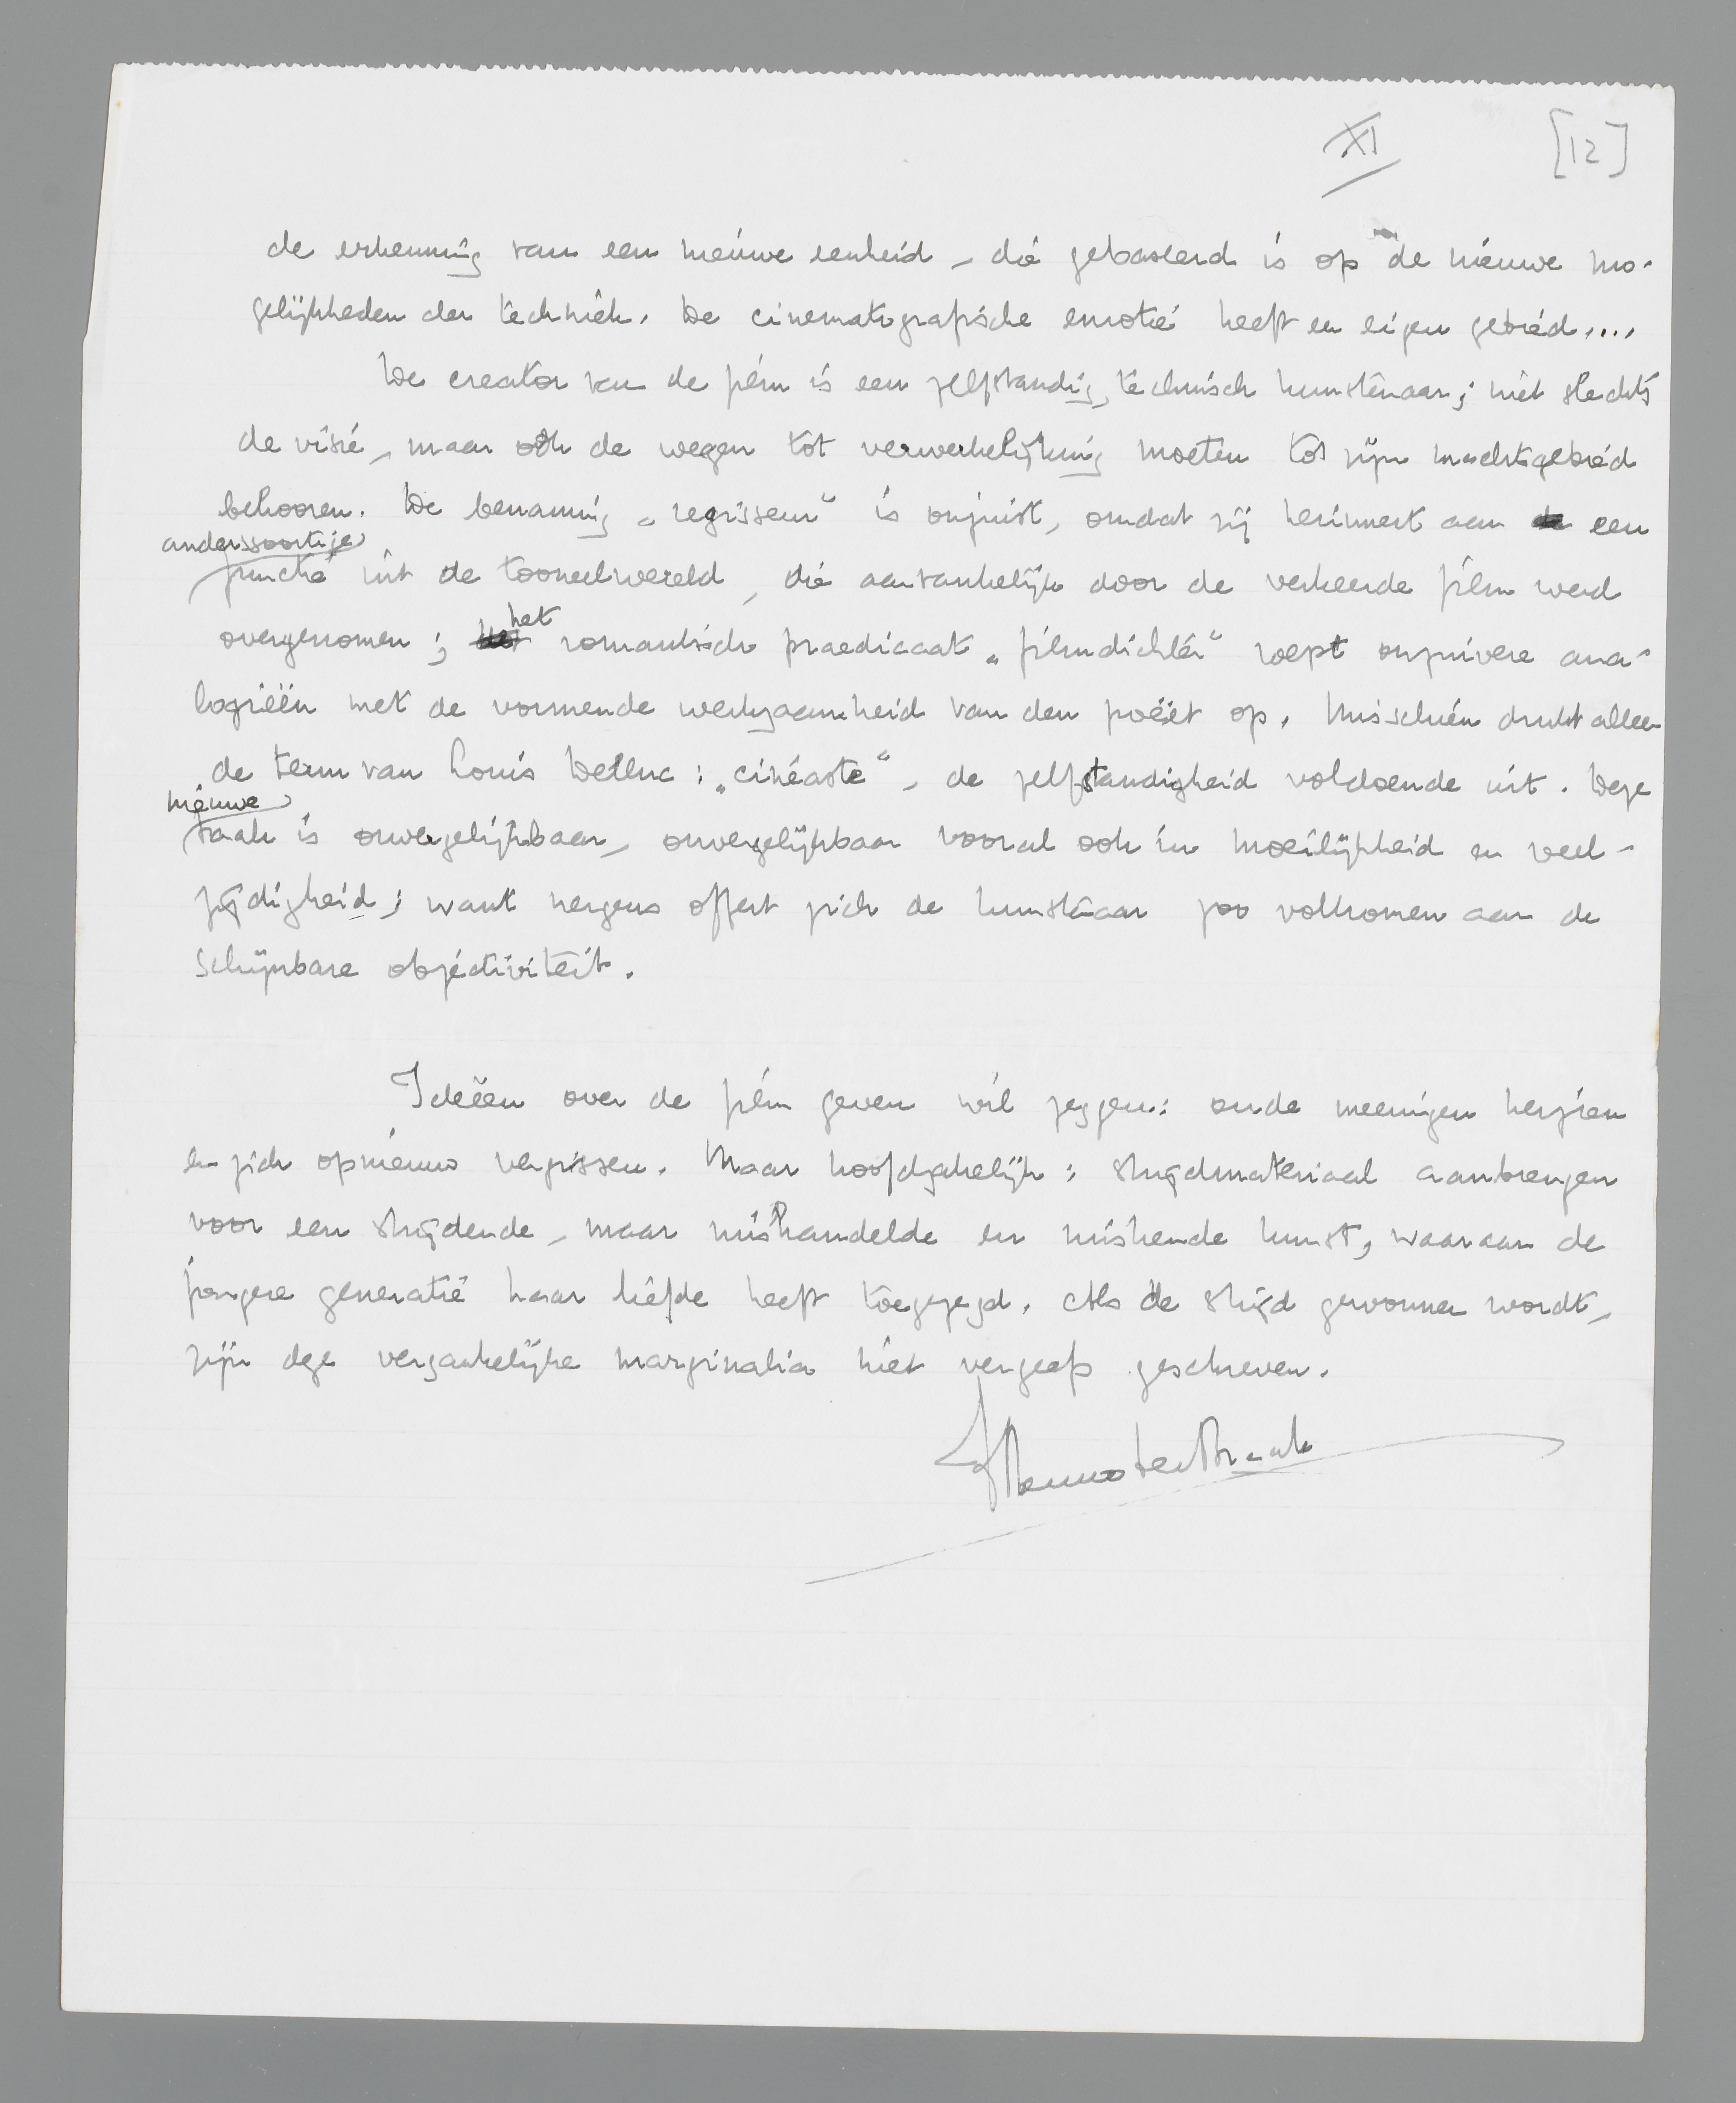 XI [12]
de erkenning van een nieuwe eenheid, die gebaseerd is op de nieuwe mo-
gelijkheden der techniek. De cinematografische emotie heeft een eigen gebied....
De creator van de film is een zelfstandig, technisch kunstenaar; niet slechts
de visie, maar ook de wegen tot verwerkelijking moeten tot zijn machtsgebied
behooren. De benaming „regisseur" is onjuist, omdat zij herinnert aan de een
andersoortige
functie uit de tooneelwereld, die aanvankelijk door de verkeerde film werd
het
overgenomen; romantische praedicaat „filmdichter" roept onzuivere ana-
logieën met de vormende werkzaamheid van den poëet op. Misschien drukt alleen
de term van Louis Delluc: „cinéaste", de zelfstandigheid voldoende uit. Deze
nieuwe
taak is onvergelijkbaar, onvergelijkbaar vooral ook in moeilijkheid en veel-
zijdigheid; want nergens offert zich de kunstenaar zoo volkomen aan de
schijnbare objectiviteit.
Ideëen over de film geven wil zeggen: oude meeningen herzien
en zich opnieuw vergissen. Maar hoofdzakelijk: strijdmateriaal aanbrengen
voor een strijdende, maar mishandelde en miskende kunst, waaraan de
jongere generatie haar liefde heeft toegezegd. Als de strijd gewonnen wordt,
zijn deze vergankelijke marginalia niet vergeefs geschreven.
Menno ter Braak